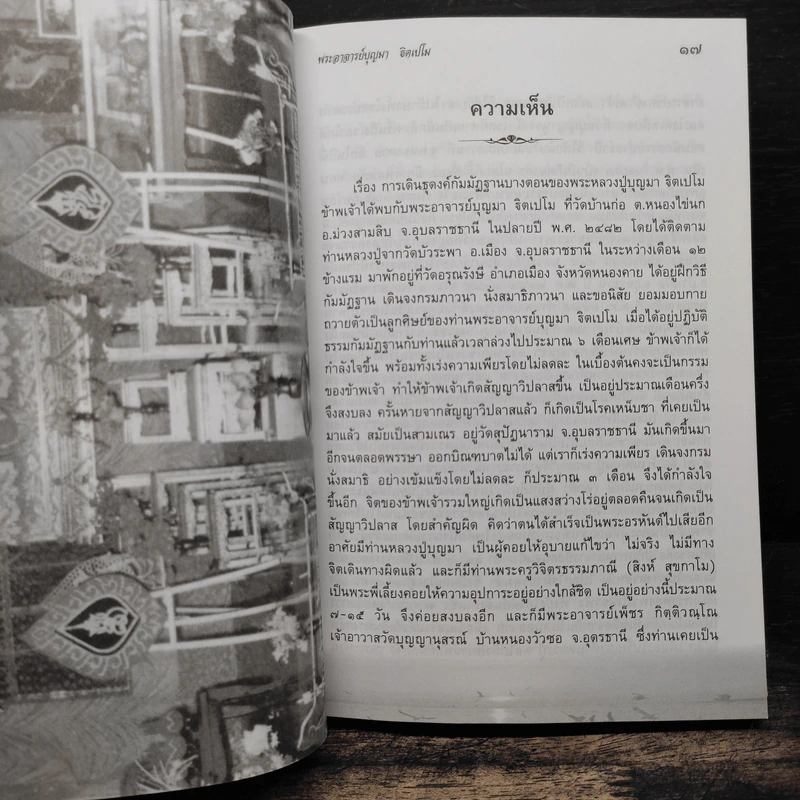 พระอาจารย์บุญมา ฐิตเปโม
๑๗
ความเห็น
เรื่อง การเดินธุดงค์กัมมัฏฐานบางตอนของพระหลวงปู่บุญมา ฐิตเปโม
ข้าพเจ้าได้พบกับพระอาจารย์บุญมา ฐิตเปโม ที่วัดบ้านก่อ ต.หนองไข่นก
อ.ม่วงสามสิบ จ.อุบลราชธานี ในปลายปี พ.ศ. ๒๔๘๒ โดยได้ติดตาม
ท่านหลวงปู่จากวัดบัวระพา อ.เมือง จ.อุบลราชธานี ในระหว่างเดือน ๑๒
ข้างแรม มาพักอยู่ที่วัดอรุณรังษี อำเภอเมือง จังหวัดหนองคาย ได้อยู่ฝึกวิธี
กัมมัฏฐาน เดินจงกรมภาวนา นั่งสมาธิภาวนา และขอนิสัย ยอมมอบกาย
ถวายตัวเป็นลูกศิษย์ของท่านพระอาจารย์บุญมา ฐิตเปโม เมื่อได้อยู่ปฏิบัติ
ธรรมกัมมัฏฐานกับท่านแล้วเวลาล่วงไปประมาณ ๖ เดือนเศษ ข้าพเจ้าก็ได้
กำลังใจขึ้น พร้อมทั้งเร่งความเพียรโดยไม่ลดละ ในเบื้องต้นคงจะเป็นกรรม
ของข้าพเจ้า ทำให้ข้าพเจ้าเกิดสัญญาวิปลาสขึ้น เป็นอยู่ประมาณเดือนครึ่ง
จึงสงบลง ครั้นหายจากสัญญาวิปลาสแล้ว ก็เกิดเป็นโรคเหน็บชา ที่เคยเป็น
มาแล้ว สมัยเป็นสามเณร อยู่วัดสุปัฏนาราม จ.อุบลราชธานี มันเกิดขึ้นมา
อีกจนตลอดพรรษา ออกบิณฑบาตไม่ได้ แต่เราก็เร่งความเพียร เดินจงกรม
นั่งสมาธิ อย่างเข้มแข็งโดยไม่ลดละ ก็ประมาณ ๓ เดือน จึงได้กำลังใจ
ขึ้นอีก จิตของข้าพเจ้ารวมใหญ่เกิดเป็นแสงสว่างโร่อยู่ตลอดคืนจนเกิดเป็น
สัญญาวิปลาส โดยสำคัญผิด คิดว่าตนได้สำเร็จเป็นพระอรหันต์ไปเสียอีก
อาศัยมีท่านหลวงปู่บุญมา เป็นผู้คอยให้อุบายแก้ไขว่า ไม่จริง ไม่มีทาง
จิตเดินทางผิดแล้ว และก็มีท่านพระครูวิจิตรธรรมภาณี (สิงห์ สุขกาโม)
เป็นพระพี่เลี้ยงคอยให้ความอุปการะอยู่อย่างใกล้ชิด เป็นอยู่อย่างนี้ประมาณ
๗-๑๕ วัน จึงค่อยสงบลงอีก และก็มีพระอาจารย์เพ็ชร กิตติวณฺโณ
เจ้าอาวาสวัดบุญญานุสรณ์ บ้านหนองวัวซอ จ.อุดรธานี ซึ่งท่านเคยเป็น